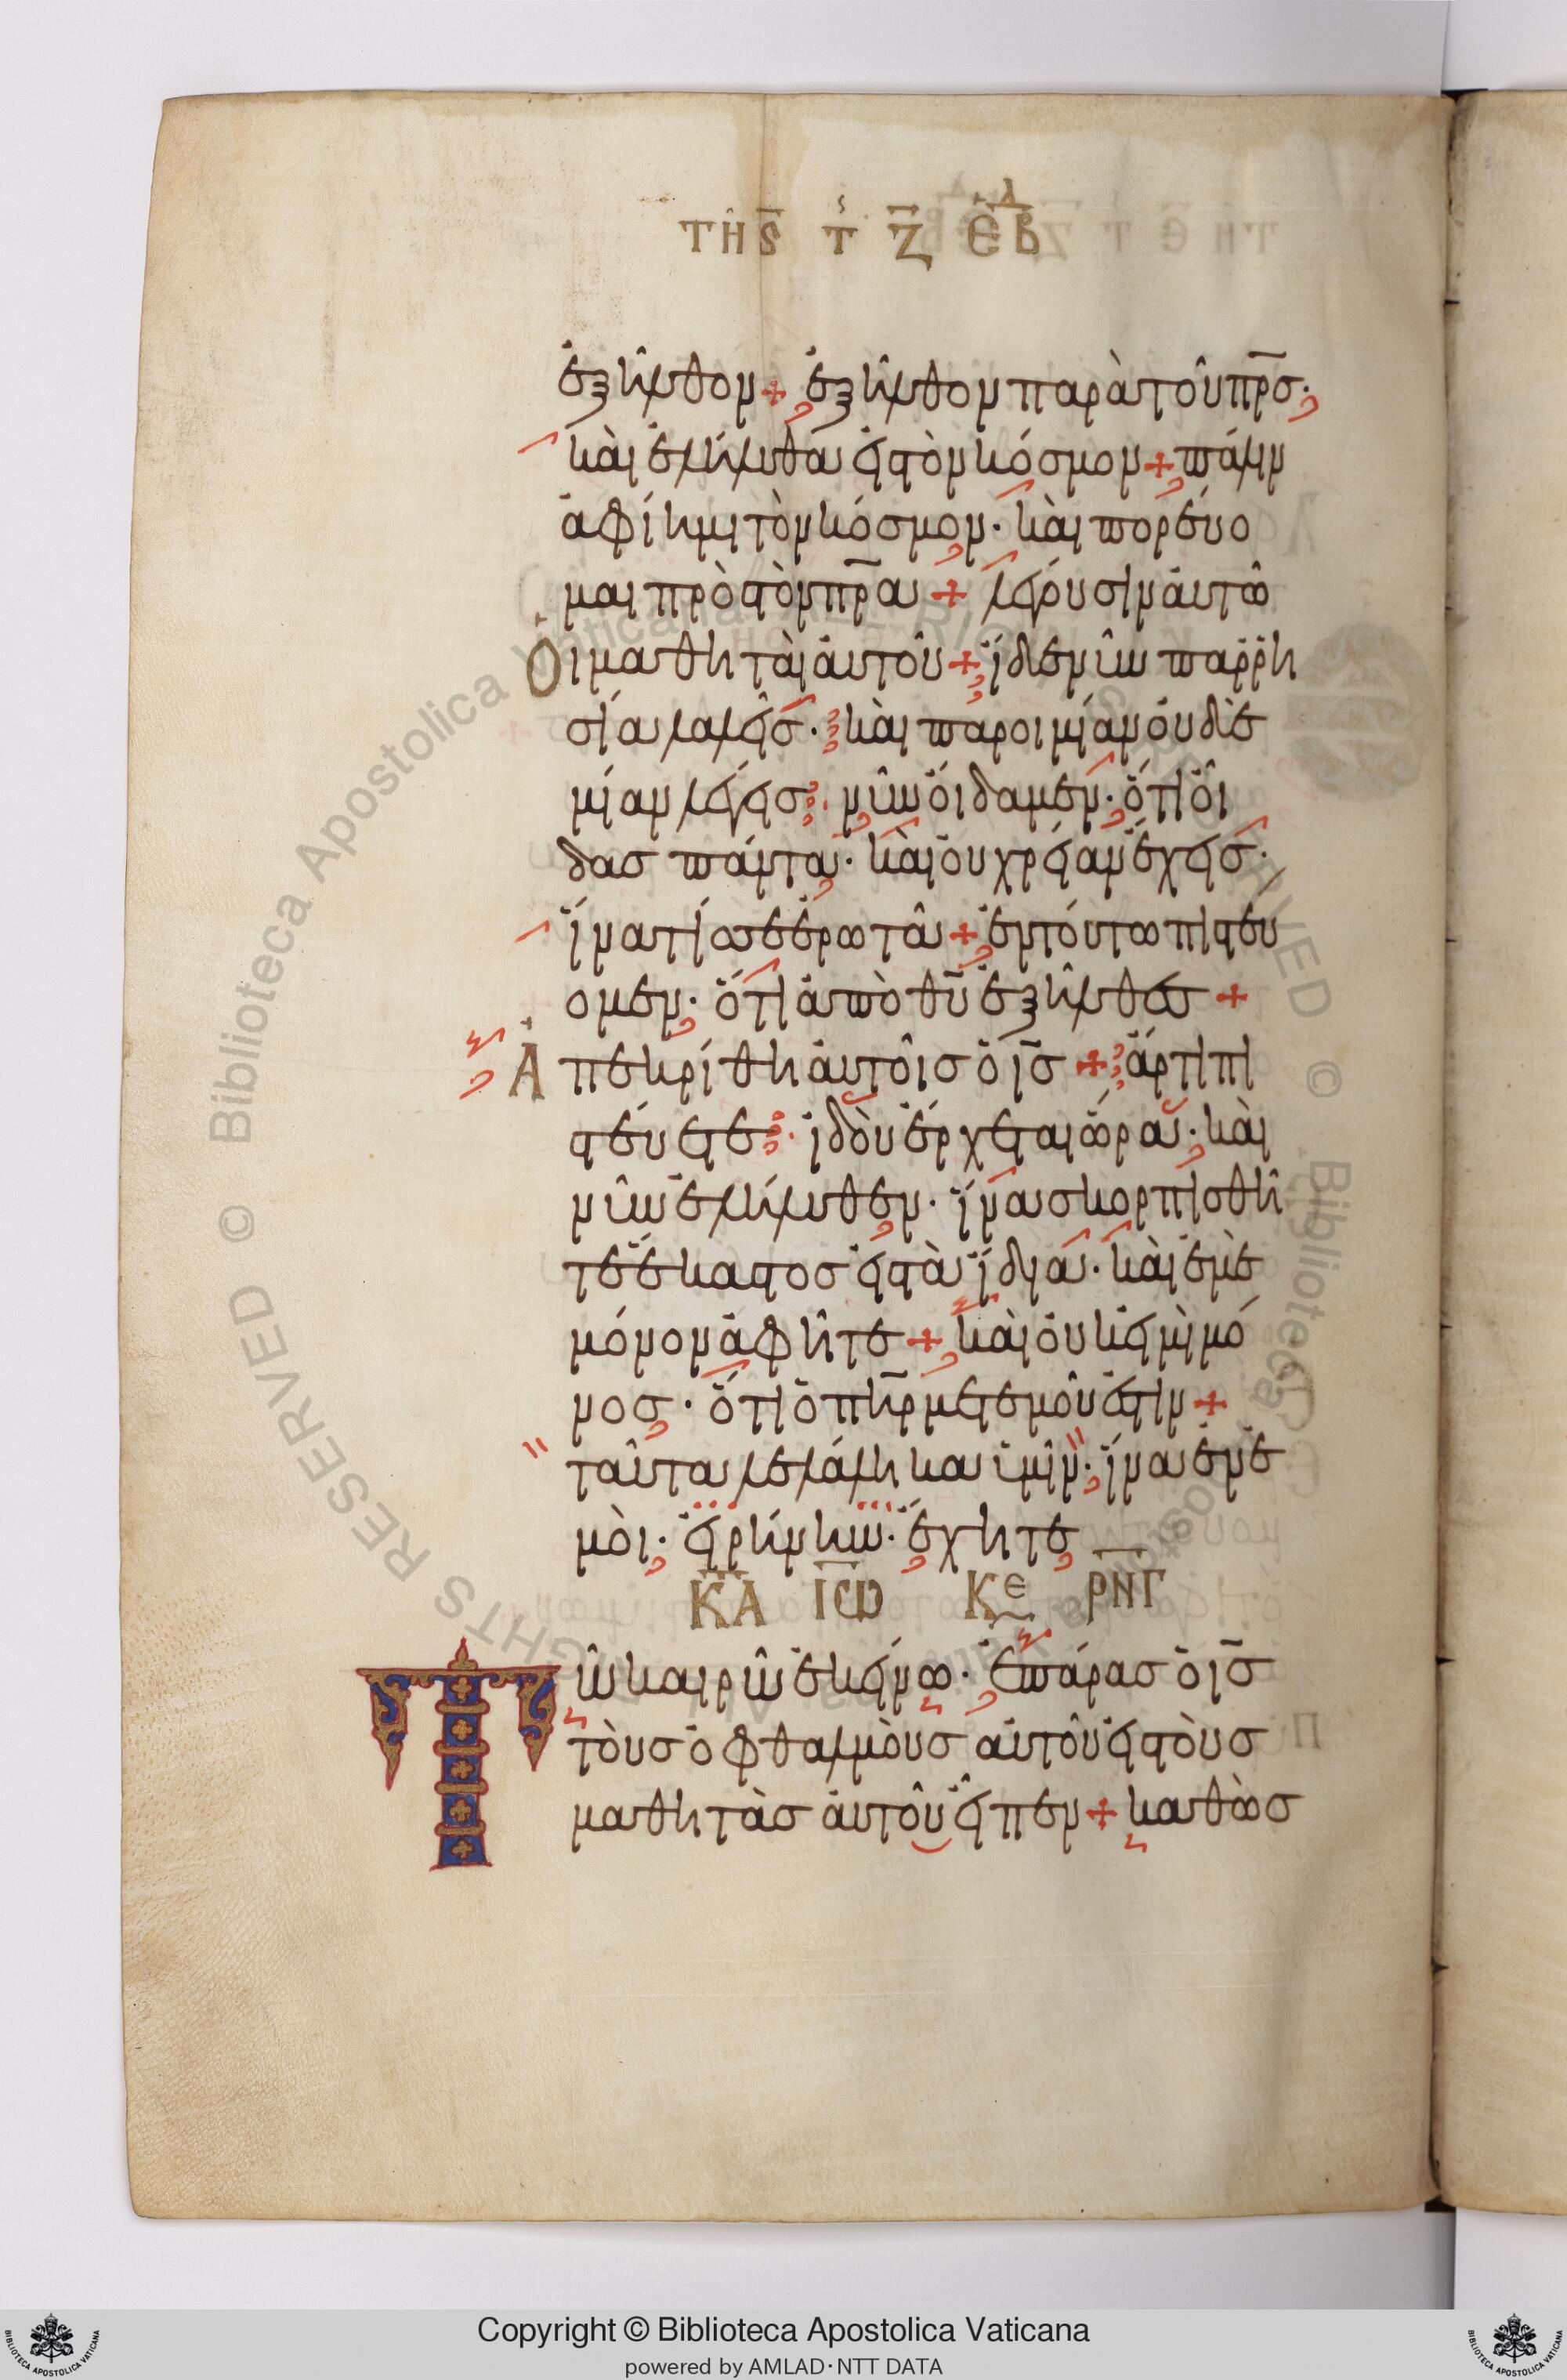 ΤΗ Ϛ̄ Τ Ζ̄ ΕΒΔ
ἐξῆλθον + ἐξῆλθον παρὰ τοῦ πρ̅σ·
καὶ ἐλήλυθα εἰς τὸν κόσμον + πάλιν
ἀφίημι τὸν κόσμον· καὶ πορεύο
μαι πρὸς τὸν πρ̅α + λέγουσιν αὐτῶ
Οἱ μαθηταὶ αὐτοῦ + ἴδε νῦν παρρη
σία λαλεῖσ· καὶ παροιμίαν οὐδε
μίαν λέγεισ· νῦν οἴδαμεν· ὅτι οἶ
δασ πάντα· καὶ οὐ χρείαν ἔχεισ·
ἵνα τίσ σε ἐρωτᾶ + ἐν τούτω πιστεύ
ομεν· ὅτι ἀπὸ θ̅υ ἐξῆλθεσ +
Ἀπεκρίθη αὐτοῖσ ὁ ι̅σ + ἄρτι πι
στεύετε· ἰδοὺ ἔρχεται ὥρα· καὶ
νῦν ἐλήλυθεν· ἵνα σκορπισθῆ
τε ἕκαστοσ εἰς τὰ ἴδια· καὶ ἐμὲ
μόνον ἀφῆτε + καὶ οὐκ εἰμὶ μό
νοσ· ὅτι ὁ π̅η̅ρ μετ ἐμοῦ ἐστιν +
ταῦτα λελάληκα ὑμῖν· ἵνα ἐν ἐ
μοὶ· εἰρήνην· ἔχητε
ΚΑ ΙΩ ΚΕ ΡΝΓ
Τῶ καιρῶ ἐκείνω· ἐπάρασ ὁ ι̅σ
τοὺσ ὀφθαλμοὺσ αὐτοῦ εἰς τοὺσ
μαθητὰσ αὐτοῦ εἶπεν + καθὼσ
Copyright © Biblioteca Apostolica Vaticana
powered by AMLAD·NTT DATA